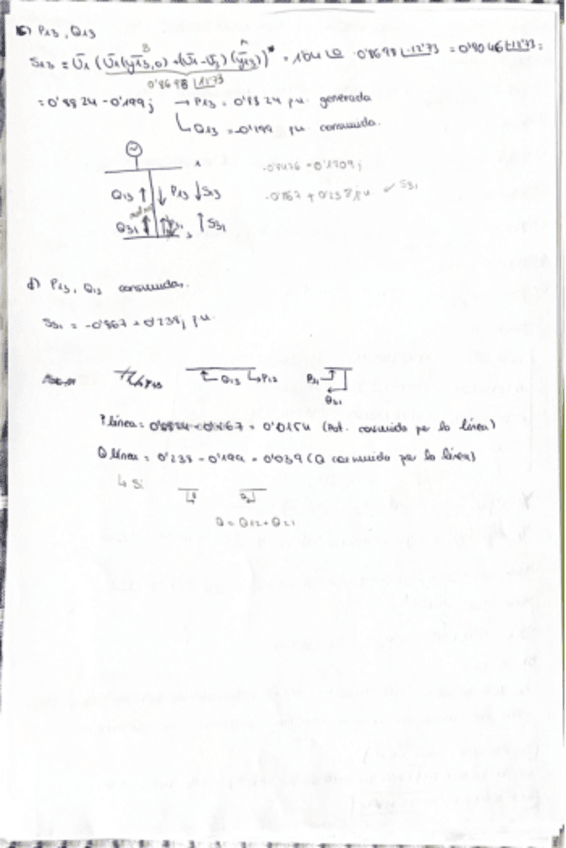 c) P13, Q13
S13 = U1 (U1(y13,0) + (U1-U3)(y13))* = 1'04∠0 · 0'8698∠-12'73 = 0'9046∠-12'73 =
0'8698∠12'73
= 0'8824 - 0'199j → P13 = 0'8824 pu. generada
Q13 = -0'199 pu. consumida.
1
-0'867 + 0'238j pu ✓ S31
Q13 ↑ ↓ P13 ↓ S13
Q31 ↑ ↑ S31
3
d) P13, Q13 consumidas.
S31 = -0'867 + 0'238j pu.
← Q13 → P13 P31
Q31
P línea = 0'8824 - 0'867 = 0'0154 (Pot. consumida por la línea)
Q línea = 0'238 - 0'199 = 0'039 (Q consumida por la línea)
↳ Si
Q = Q12 + Q21